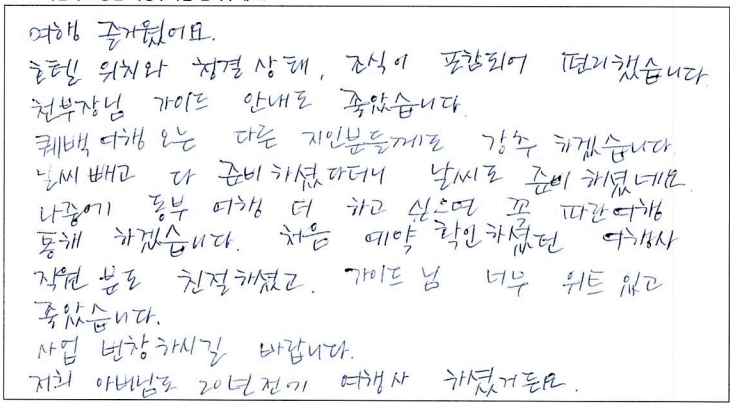 여행 즐거웠어요.
호텔 위치와 청결 상태, 조식이 포함되어 편리했습니다.
천부장님 가이드 안내도 좋았습니다.
퀘백 여행 오는 다른 지인분들께도 강추 하겠습니다.
날씨 빼고 다 준비 하셨다더니 날씨도 준비 하셨네요.
나중에 동부 여행 더 하고 싶으면 꼭 파란여행
통해 하겠습니다. 처음 예약 확인하셨던 여행사
직원 분도 친절하셨고. 가이드 님 너무 위트 있고
좋았습니다.
사업 번창하시길 바랍니다.
저희 아버님도 20년전기 여행사 하셨거든요.